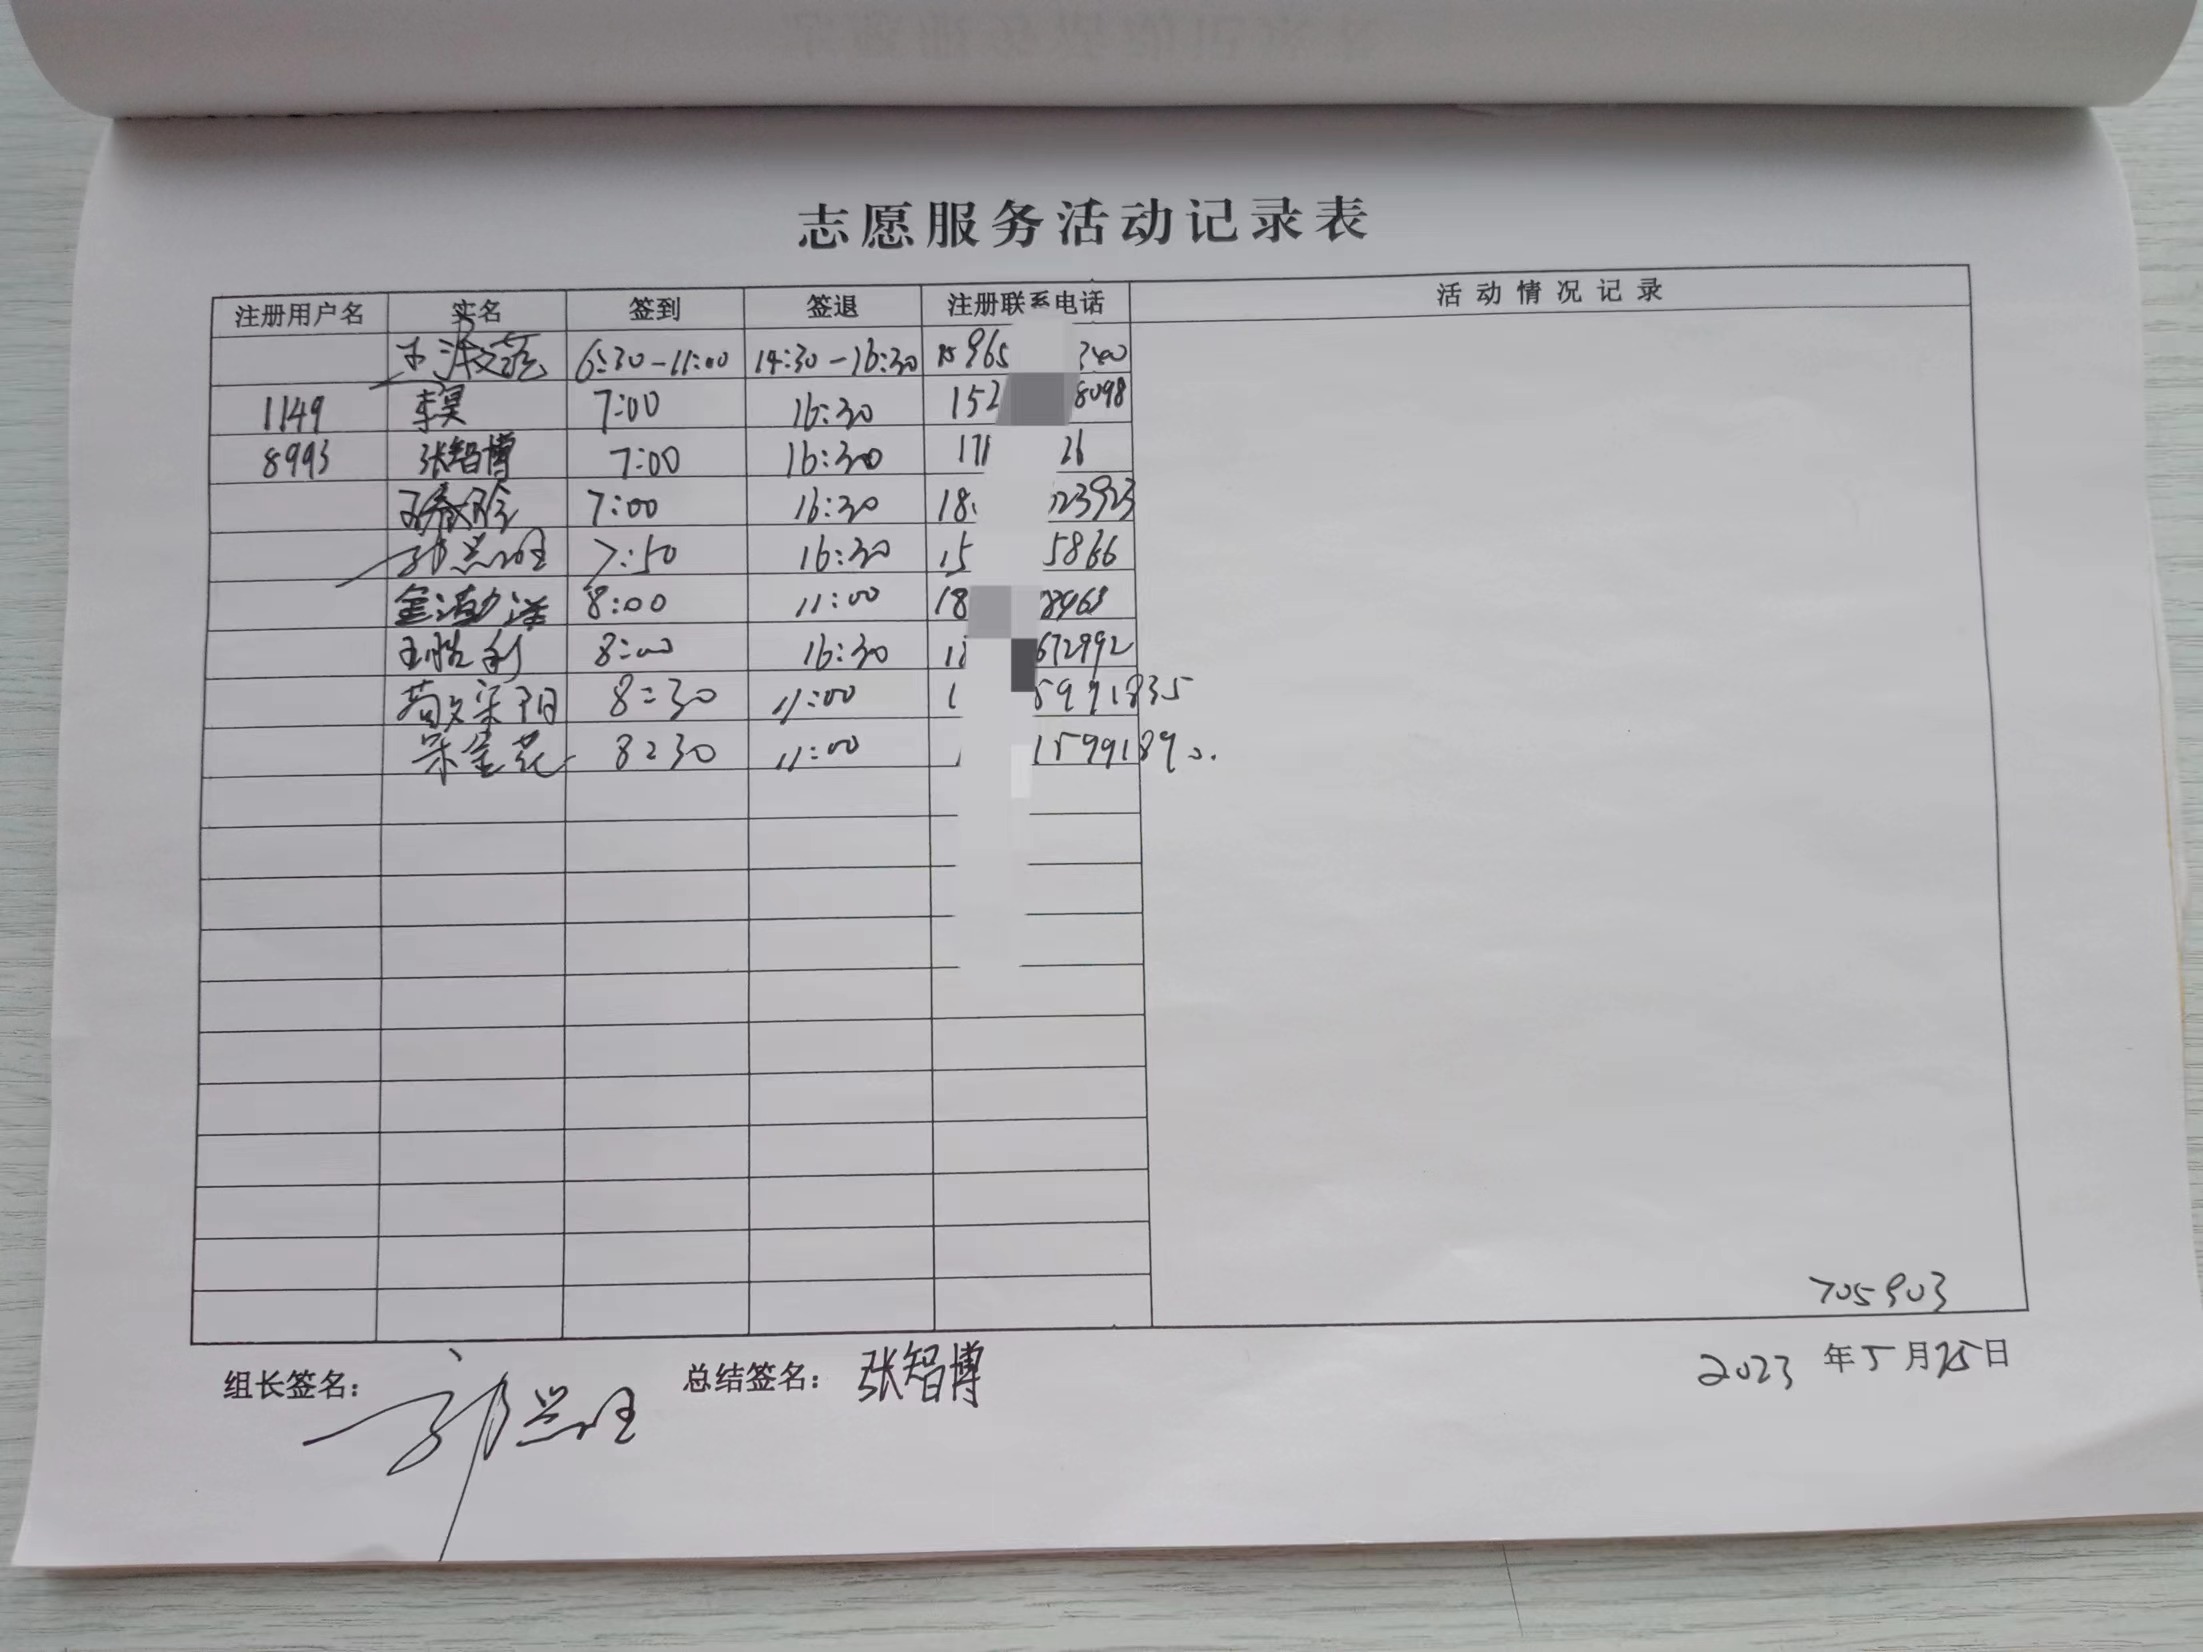 志愿服务活动记录表
注册用户名 实名 签到 签退 注册联系电话 活动情况记录
6:30-11:00 14:30-16:30
1149 李昊 7:00 16:30 152 8098
8993 张智博 7:00 16:30 171 26
7:00 16:30 18 23923
7:50 16:30 15 5866
8:00 11:00 18 8963
王胜利 8:00 16:30 672992
8:30 11:00 1 5991835
宋金花 8:30 11:00 1599189
705903
组长签名: 总结签名: 张智博 2023年5月25日